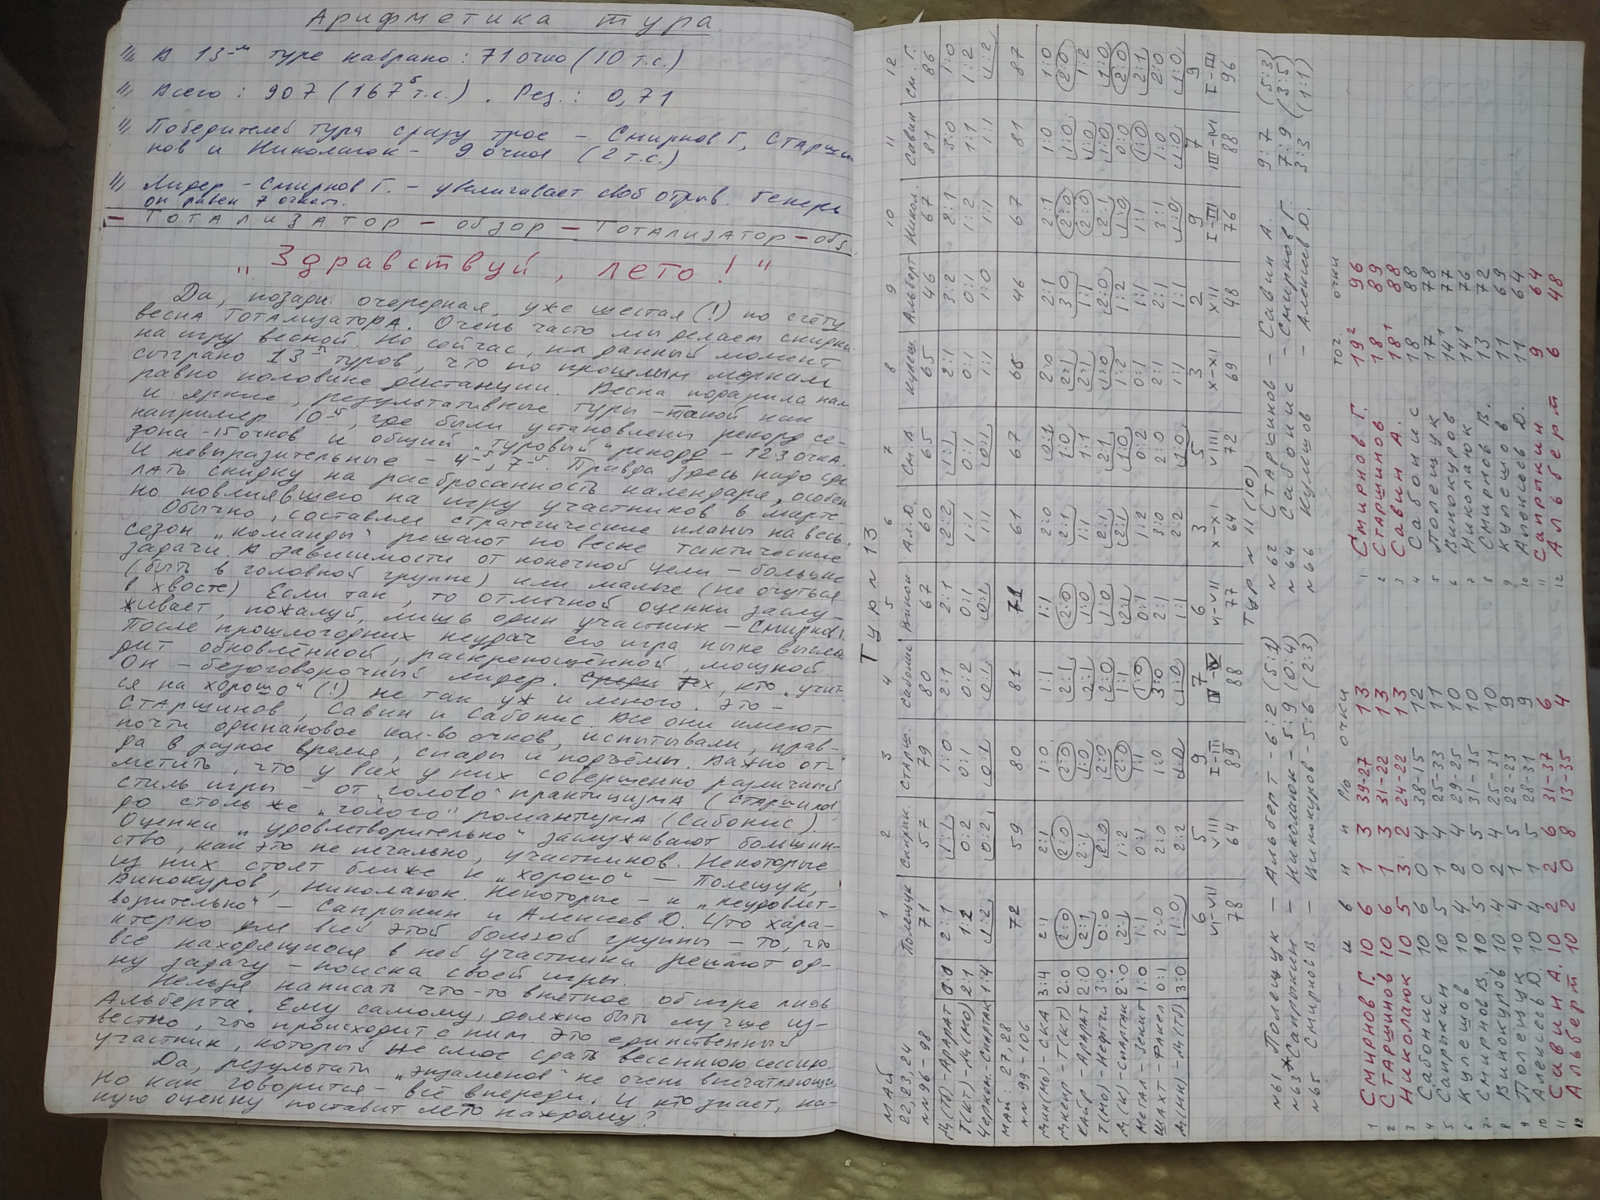 Арифметика тура
В 13-м туре набрано: 71 очко (10 т.с.)
Всего: 907 (167⁵ т.с.). Рез.: 0,71
Победителей тура сразу трое – Смирнов Г, Старши-
нов и Николаюк – 9 очков (2 т.с.)
Лидер – Смирнов Г. – увеличивает свой отрыв. Теперь
он равен 7 очкам.
– Тотализатор – обзор – Тотализатор – обз
"Здравствуй, лето!"
Да, позади очередная, уже шестая (!) по счёту
весна Тотализатора. Очень часто мы делаем скидки
на игру весной. Но сейчас, на данный момент
сыграно 13 туров, что по прошлым меркам
равно половине дистанции. Весна подарила нам
и яркие, результативные туры – такой как
например 10-й, где были установлены рекорд се-
зона – 15 очков и общий "туровый" рекорд – 123 очка.
И невыразительные – 4-й, 7-й. Правда здесь надо сде
лать скидку на разбросанность календаря, особен
но повлиявшего на игру участников в марте.
Обычно, составляя стратегические планы на весь
сезон "команды" решают по весне тактические
задачи. В зависимости от конечной цели – большие
(быть в головной группе) или малые (не очуться
в хвосте) Если так, то отличной оценки заслу-
живает, пожалуй, лишь один участник – Смирнов Г.
После прошлогодних неудач его игра ныне выгля
дит обновлённой, раскрепощённой, мощной.
Он – безоговорочный лидер. Тех, кто "учит-
ся на хорошо" (!) не так уж и много. Это –
Старшинов, Савин и Сабонис. Все они имеют
почти одинаковое кол-во очков, испытывали, прав-
да в разное время, спады и подъёмы. Важно от-
метить, что у всех у них совершенно различный
стиль игры – от "голого" практицизма (Старшинов)
до столь же "голого" романтизма (Сабонис).
Оценки "удовлетворительно" заслуживают большин-
ство, как это не печально, участников. Некоторые
из них стоят ближе к "хорошо" – Полещук,
Винокуров, Николаюк. Некоторые – к "неудовлет-
ворительно" – Сапрыкин и Алексеев Ю. Что хара-
ктерно для всей этой большой группы – то, что
все находящиеся в ней участники решают од-
ну задачу – поиска своей игры.
Нельзя написать что-то внятное об игре лишь
Альберта. Ему самому, должно быть лучше из-
вестно, что происходит с ним. Это единственный
участник, который не смог сдать весеннюю сессию.
Да, результаты "экзаменов" не очень впечатляющи.
Но как говорится – всё впереди. И кто знает, ка-
кую оценку поставит лето каждому?
Тур № 13
МАЙ 1 2 3 4 5 6 7 8 9 10 11 12
22,23,24 Полещук Сапрык Старш. Сабонис Винок Ал.Ю. См.В. Кулеш Альберт Никол. Савин См. Г.
№№ 96-98 71 57 79 80 67 60 65 65 46 67 81 86
Д(Тб) - Арарат 0:0 2:1 1:1 1:0 2:1 2:1 2:2 1:1 2:1 3:2 2:1 3:0 1:0
Т(КТ) - Д(МО) 2:1 1:2 0:2 0:1 0:2 0:1 1:1 0:1 0:1 0:1 1:2 1:1 1:2
Черном. - Спартак 1:4 1:2 0:2 0:1 0:1 0:1 1:1 0:1 1:1 1:0 1:1 1:1 1:2
МАЙ: 27,28
№№ 99-106 72 59 80 81 71 61 67 66 46 67 81 87
Дин(Мо) - СКА 3:4 2:1 2:1 1:0 1:1 1:1 2:0 0:1 2:0 2:1 2:1 1:0 1:0
Днепр - Т(КТ) 2:0 2:0 2:0 2:0 2:1 2:0 2:1 1:0 2:1 3:0 2:0 1:0 2:0
Кайр - Арарат 2:0 2:1 2:1 1:0 2:1 1:0 1:1 1:1 2:1 1:1 2:0 1:0 1:2
Т(Мо) - Нефтчи 3:0 0:0 2:0 2:0 2:0 1:0 2:1 2:1 1:0 2:0 2:1 1:0 1:0
Д(К) - Спартак 2:0 2:1 1:2 2:0 1:1 2:1 2:1 1:0 1:2 1:2 1:0 0:0 2:0
Метал - Зенит 1:0 1:1 0:1 1:1 1:0 0:1 1:2 0:2 0:1 1:1 1:1 1:0 2:1
Шахт - Факел 0:1 2:0 2:0 1:0 3:0 2:1 3:0 2:0 2:1 2:1 3:1 1:0 2:0
Д(Мн) - Д(Тб) 3:0 1:0 2:2 1:0 1:0 1:1 2:2 1:0 1:1 1:1 1:0 1:0 1:0
6 5 9 7 6 3 5 3 2 9 7 9
VI-VII VIII I-III IV-V VI-VII X-XI VIII X-XI XII I-III I-III
78 64 89 88 77 64 72 69 48 76 88 96
Тур № 11 (10)
№61 Полещук – Альберт – 6:2 (5:1) №62 Старшинов – Савин А. 9:7 (5:3)
№63 Сапрыкин – Николаюк – 5:9 (0:4) №64 Сабонис – Смирнов Г. 7:9 (3:5)
№65 Смирнов В. – Винокуров – 5:6 (2:3) №66 Кулешов – Алексеев Ю. 3:3 (1:1)
и в н п Ро очки
1 Смирнов Г. 10 6 1 3 39-27 13
2 Старшинов 10 6 1 3 31-22 13
3 Николаюк 10 5 3 2 24-22 13
4 Сабонис 10 6 0 4 38-15 12
5 Сапрыкин 10 5 1 4 25-33 11
6 Кулешов 10 4 2 4 29-25 10
7 Смирнов В. 10 5 0 5 31-35 10
8 Винокуров 10 4 2 4 25-31 10
9 Полещук 10 4 1 5 22-23 9
10 Алексеев Ю. 10 4 1 5 28-31 9
11 Савин А. 10 2 2 6 31-37 6
12 Альберт 10 2 0 8 13-35 4
тог. очки
1 Смирнов Г. 19² 96
2 Старшинов 18 89
3 Савин А. 18¹ 88
4 Сабонис 18 88
5 Полещук 17 78
6 Винокуров 14¹ 77
7 Николаюк 14¹ 76
8 Смирнов В. 13 72
9 Кулешов 11 69
10 Алексеев Ю. 11 64
11 Сапрыкин 9 64
12 Альберт 6 48